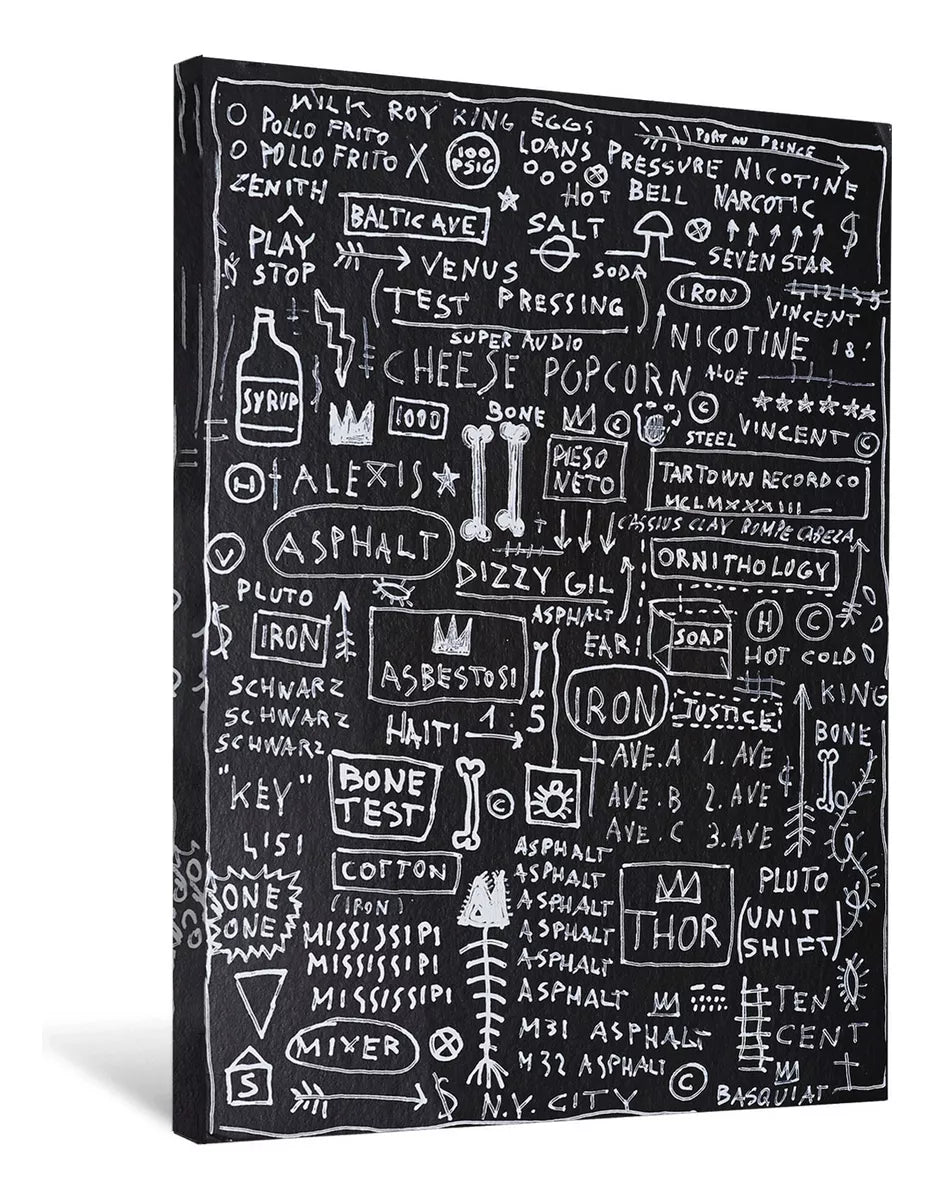 MILK ROY KING EGGS
PORT AU PRINCE
POLLO FRITO
POLLO FRITO X
100
PSIG
LOANS
PRESSURE NICOTINE
ZENITH
HOT BELL NARCOTIC
BALTIC AVE.
SALT
$
PLAY
STOP
VENUS
SODA
SEVEN STAR
(TEST PRESSING)
IRON
VINCENT
SUPER AUDIO
NICOTINE 18!
CHEESE POPCORN
ALOE
SYRUP
1000
BONE
©
©
STEEL
VINCENT ©
PIESO
NETO
H
ALEXIS
TARTOWN RECORD CO
MCLMXXXIII
CASSIUS CLAY ROMPE CABEZA
V
ASPHALT
ORNITHOLOGY
DIZZY GIL
PLUTO
ASPHALT
$
IRON
EAR
SOAP
H C
HOT COLD
ASBESTOSI
SCHWARZ
SCHWARZ
SCHWARZ
IRON
JUSTICE
KING
BONE
HAITI
1:5
"KEY"
BONE
TEST
©
AVE. A 1. AVE
AVE. B 2. AVE
AVE. C 3. AVE
¢
4151
COTTON
(IRON)
ASPHALT
ASPHALT
ASPHALT
ASPHALT
ASPHALT
ASPHALT
M31 ASPHALT
M32 ASPHALT
ONE
ONE
MISSISSIPI
MISSISSIPI
MISSISSIPI
THOR
PLUTO
(UNIT
SHIFT)
TEN
CENT
MIXER
S
$
N.Y. CITY
©
BASQUIAT